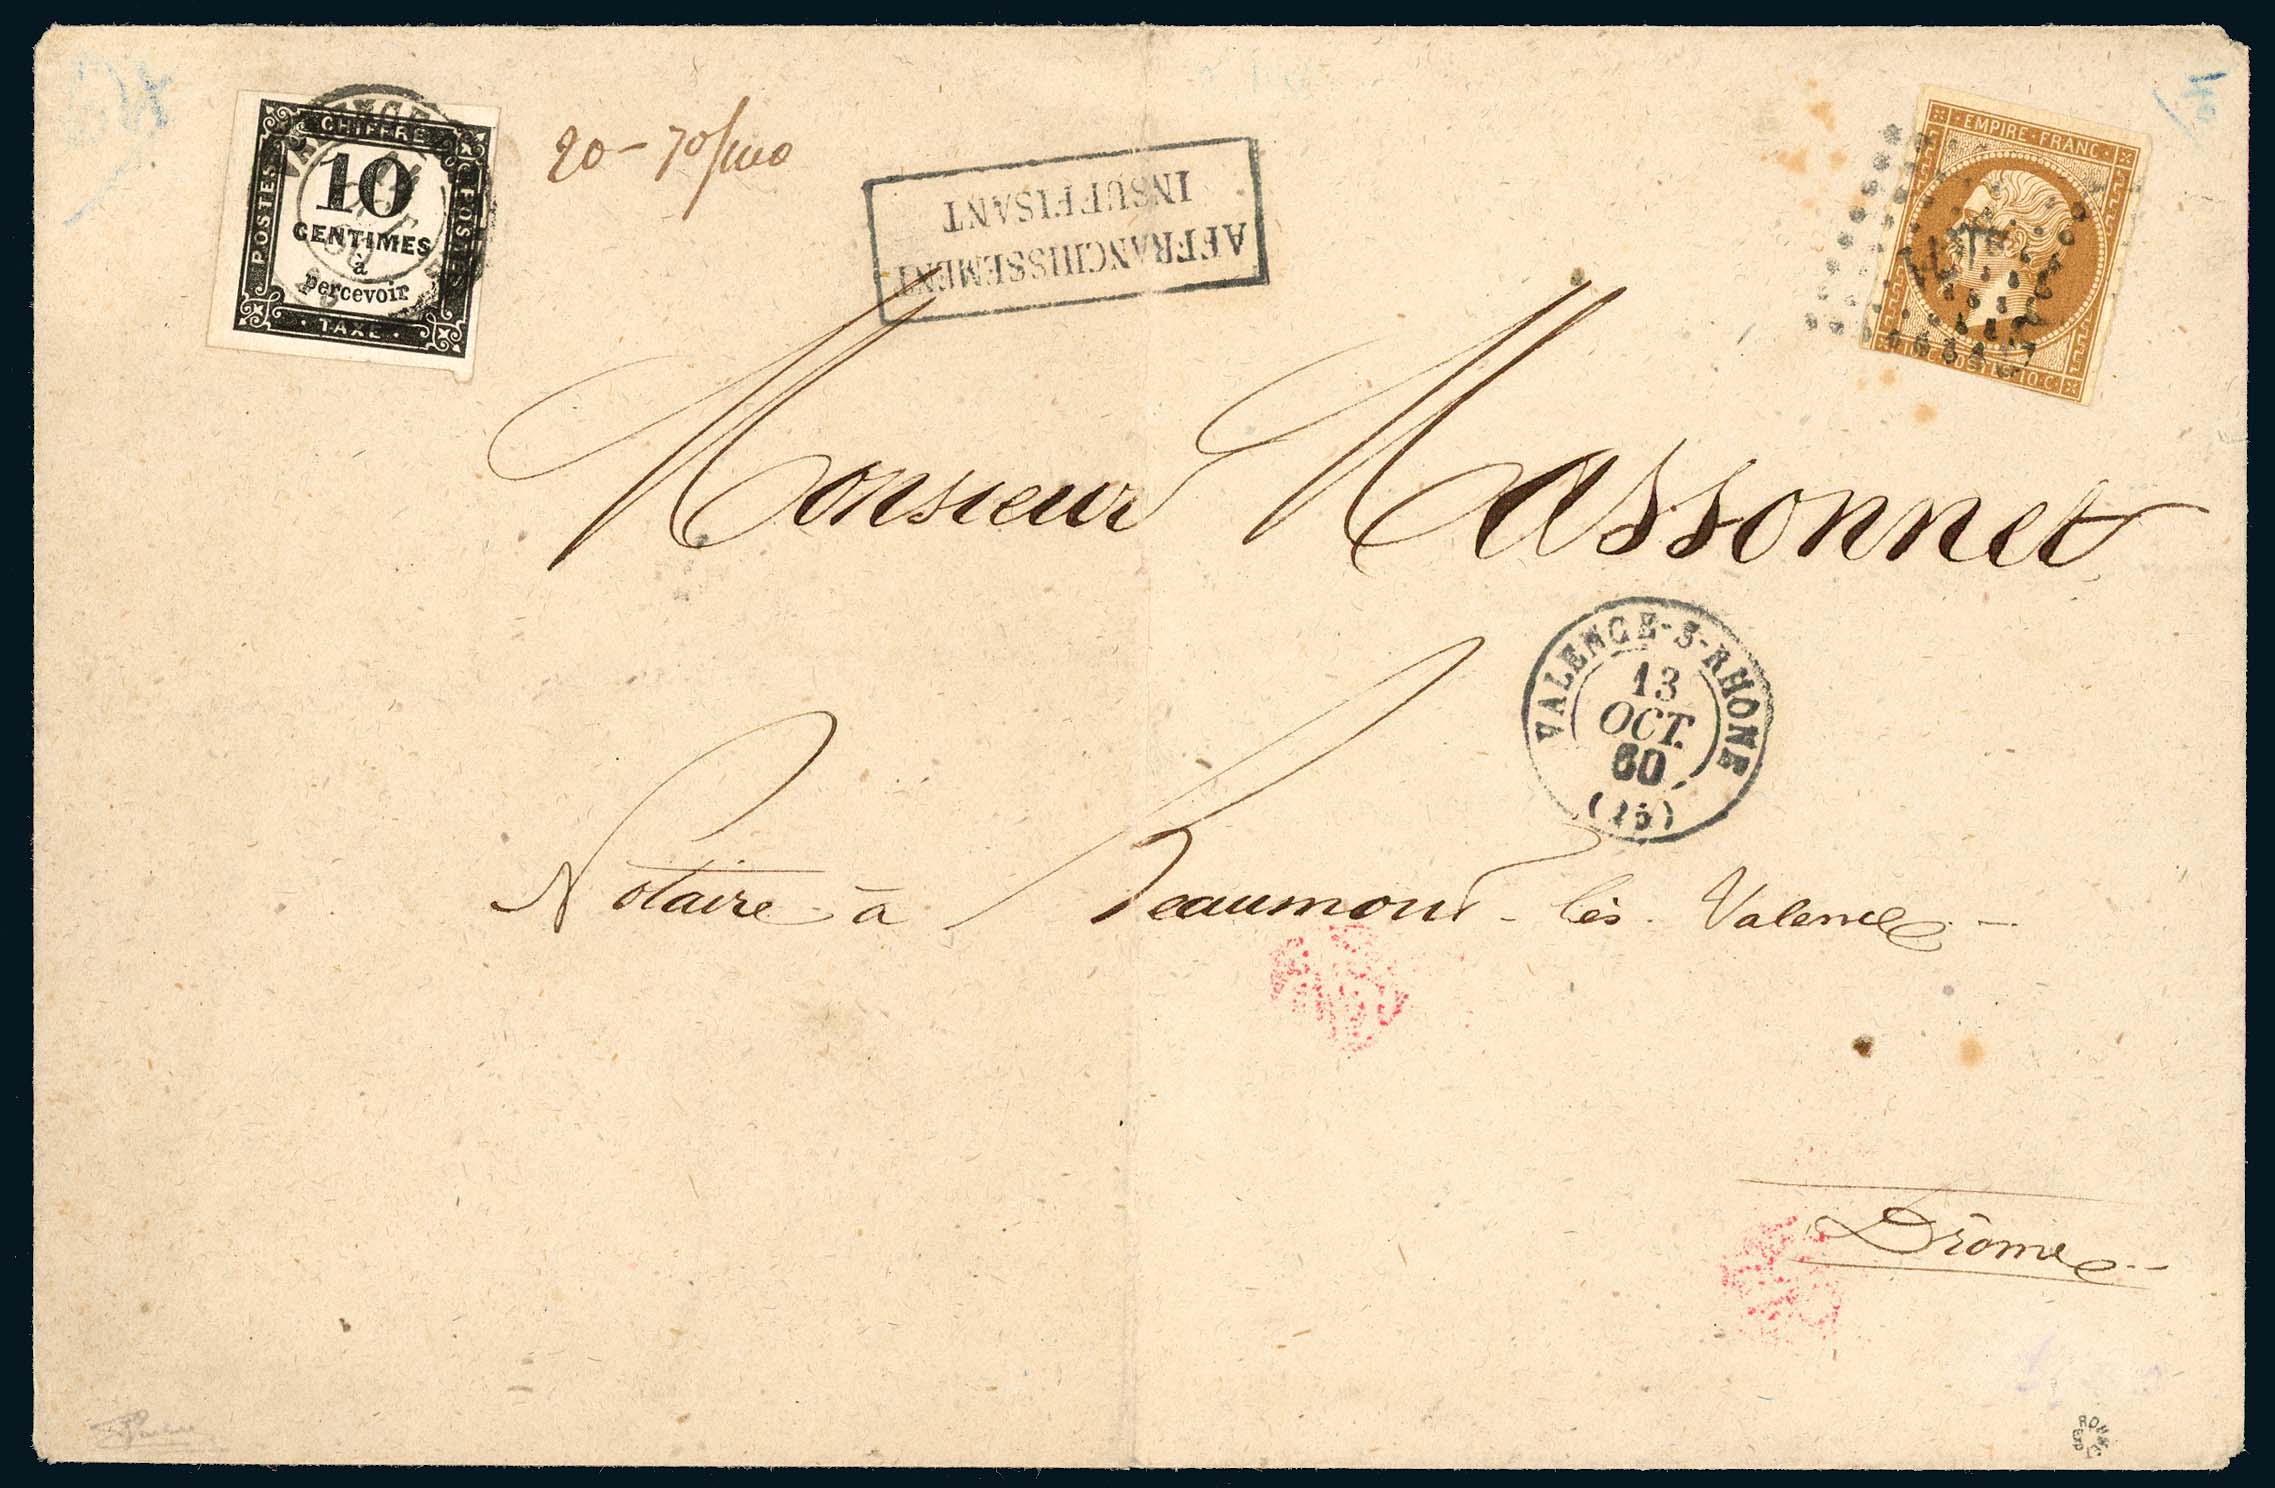 CHIFFRE
POSTES
10
CENTIMES
à
percevoir
POSTES
TAXE
VALENCE
AFFRANCHISSEMENT
INSUFFISANT
EMPIRE · FRANC ·
10 · C · POSTES · 10 · C ·
Monsieur Massonnet
VALENCE-S-RHONE
13
OCT.
60
(25)
Notaire à Beaumont - lès - Valence -
Drôme